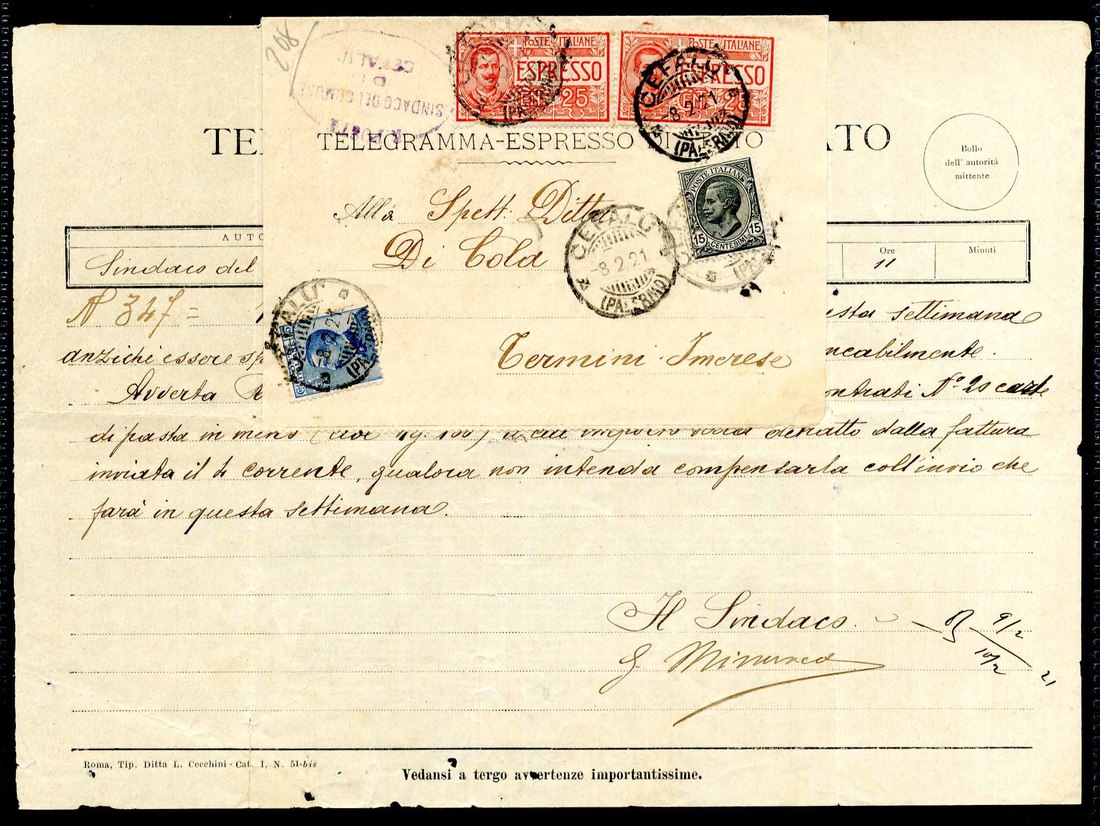 208
SINDACO DEL COMUNE
DI
CEFALÙ
POSTE ITALIANE
ESPRESSO
CENT. 25
POSTE ITALIANE
ESPRESSO
25
CEFALÙ
-8.2.21
(PALERMO)
TELEGRAMMA-ESPRESSO DI STATO
TE
ATO
Bollo
dell' autorità
mittente
Alla Spett. Ditta
Di Cola
Termini Imerese
POSTE ITALIANE
15 CENTESIMI 15
CEFALÙ
-8.2.21
(PALERMO)
CEFALÙ
-8.2.21
(PALERMO)
AUTO
Ore
Minuti
Sindaco del
11
N 347 =
sta settimana
anzichè essere sp
ncabilmente.
Avverta
ontrati N° 20 casse
di pasta in meno
detratto dalla fattura
inviata il 4 corrente, qualora non intenda compensarla coll'invio che
farà in questa settimana.
Il Sindaco
9/2
10/2
21
Roma, Tip. Ditta L. Cecchini - Cat. I, N. 51-bis
Vedansi a tergo avvertenze importantissime.